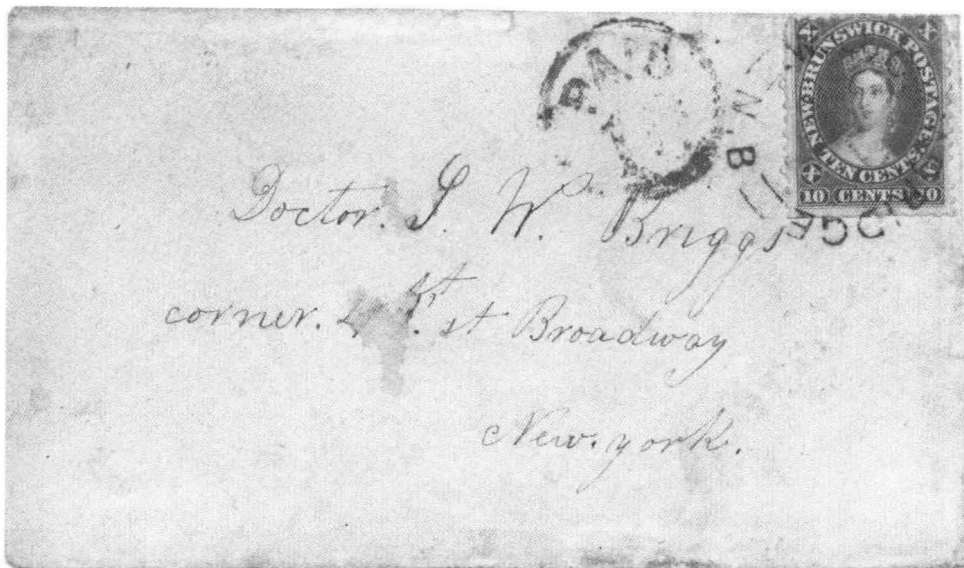 PAID
N.B
NEW BRUNSWICK POSTAGE
TEN CENTS
10 CENTS 10
Doctor. S. W. Briggs
corner. st Broadway
New. york.